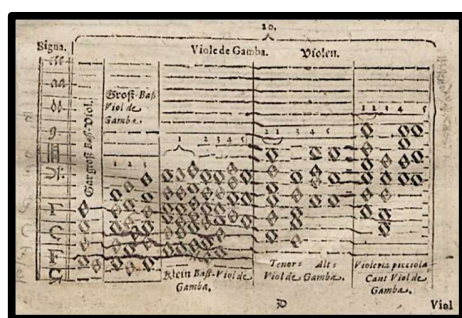 20.
Signa.
Viole de Gamba. Violen.
Gar groß Baß-Viol.
Groß-Baß
Viol de
Gamba.
1 2 3
1 2 3 4 5
2 1 3 4 5
1 2 3 4 5
Klein Baß-Viol de
Gamba.
Tenor- Alt-
Viol de Gamba.
Violetta piccola
Cant Viol de
Gamba.
Viol